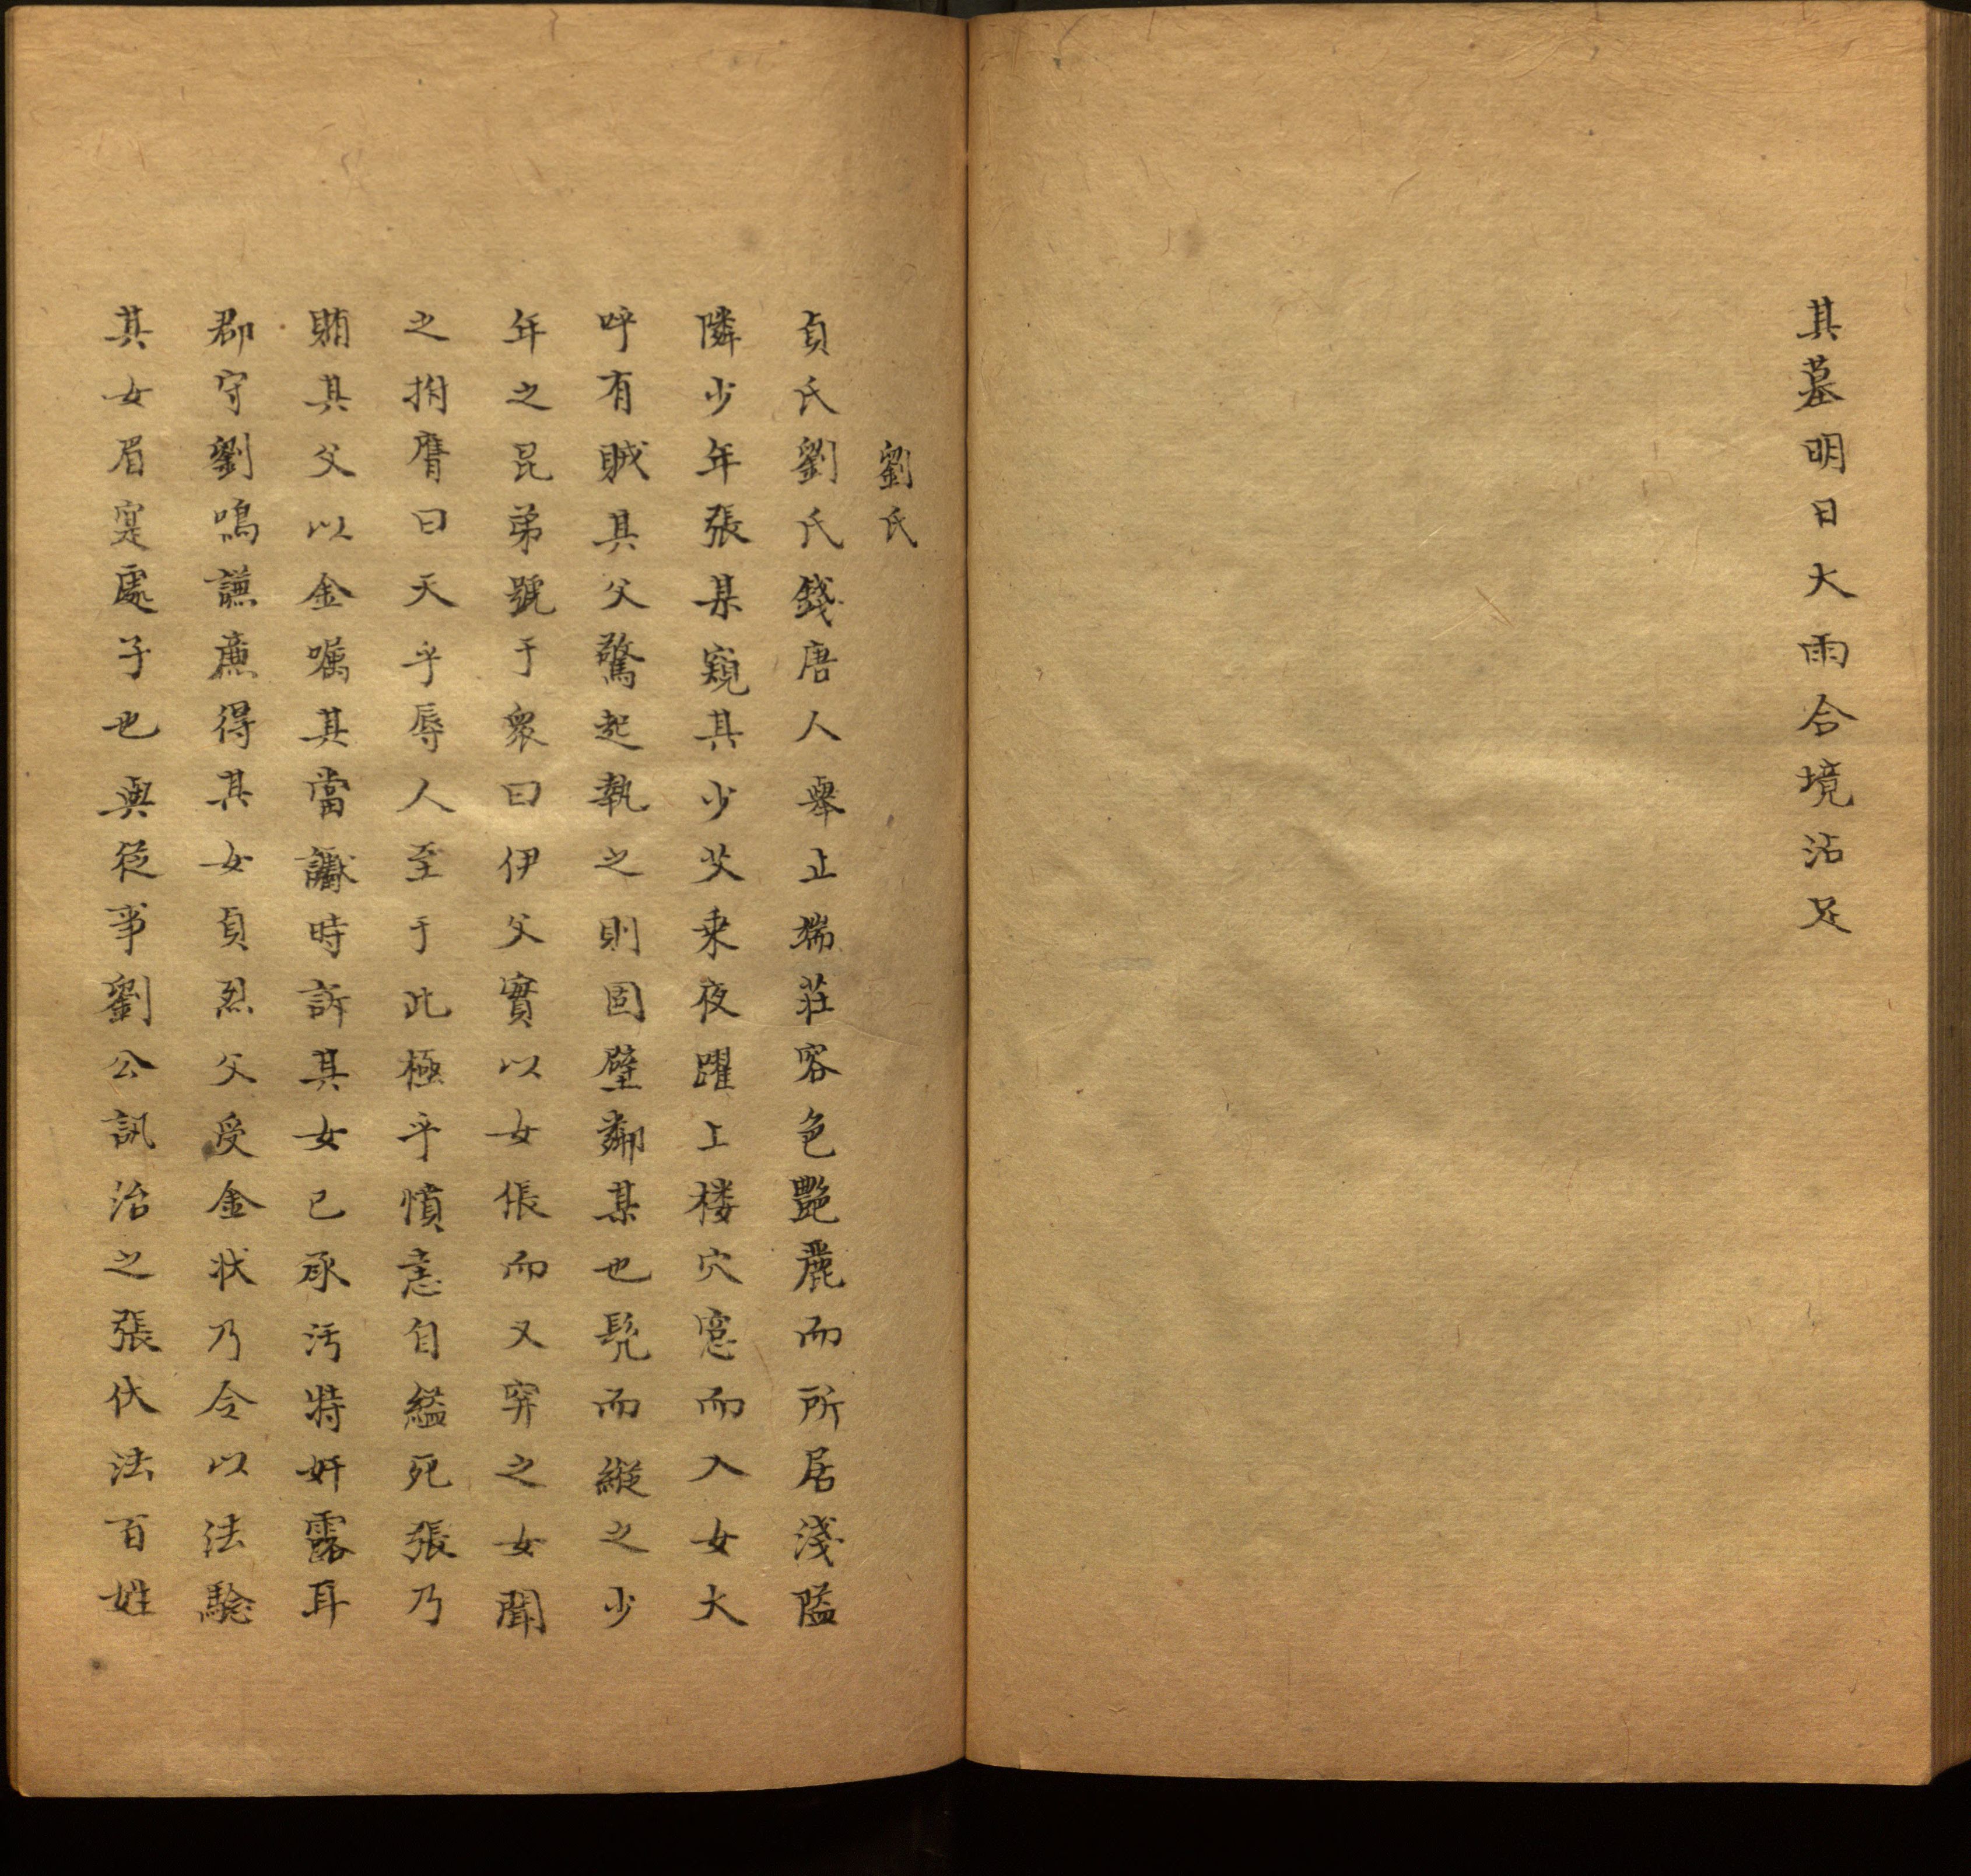 其墓明日大雨合境沾足
劉氏
貞氏劉氏錢唐人舉止端莊容色艷麗而所居淺隘
隣少年張某窺其少艾乗夜躍上楼穴窓而入女大
呼有賊其父驚起執之則固壁鄰某也髡而縦之少
年之昆弟號于衆曰伊父實以女倀而又穽之女聞
之拊膺曰天乎辱人至于此極乎憤恚自縊死張乃
賄其父以金嘱其當讞時訴其女已承汚特奸露耳
郡守劉鳴謙廉得其女貞烈父受金状乃令以法驗
其女眉寔處子也輿従事劉公訊治之張伏法百姓